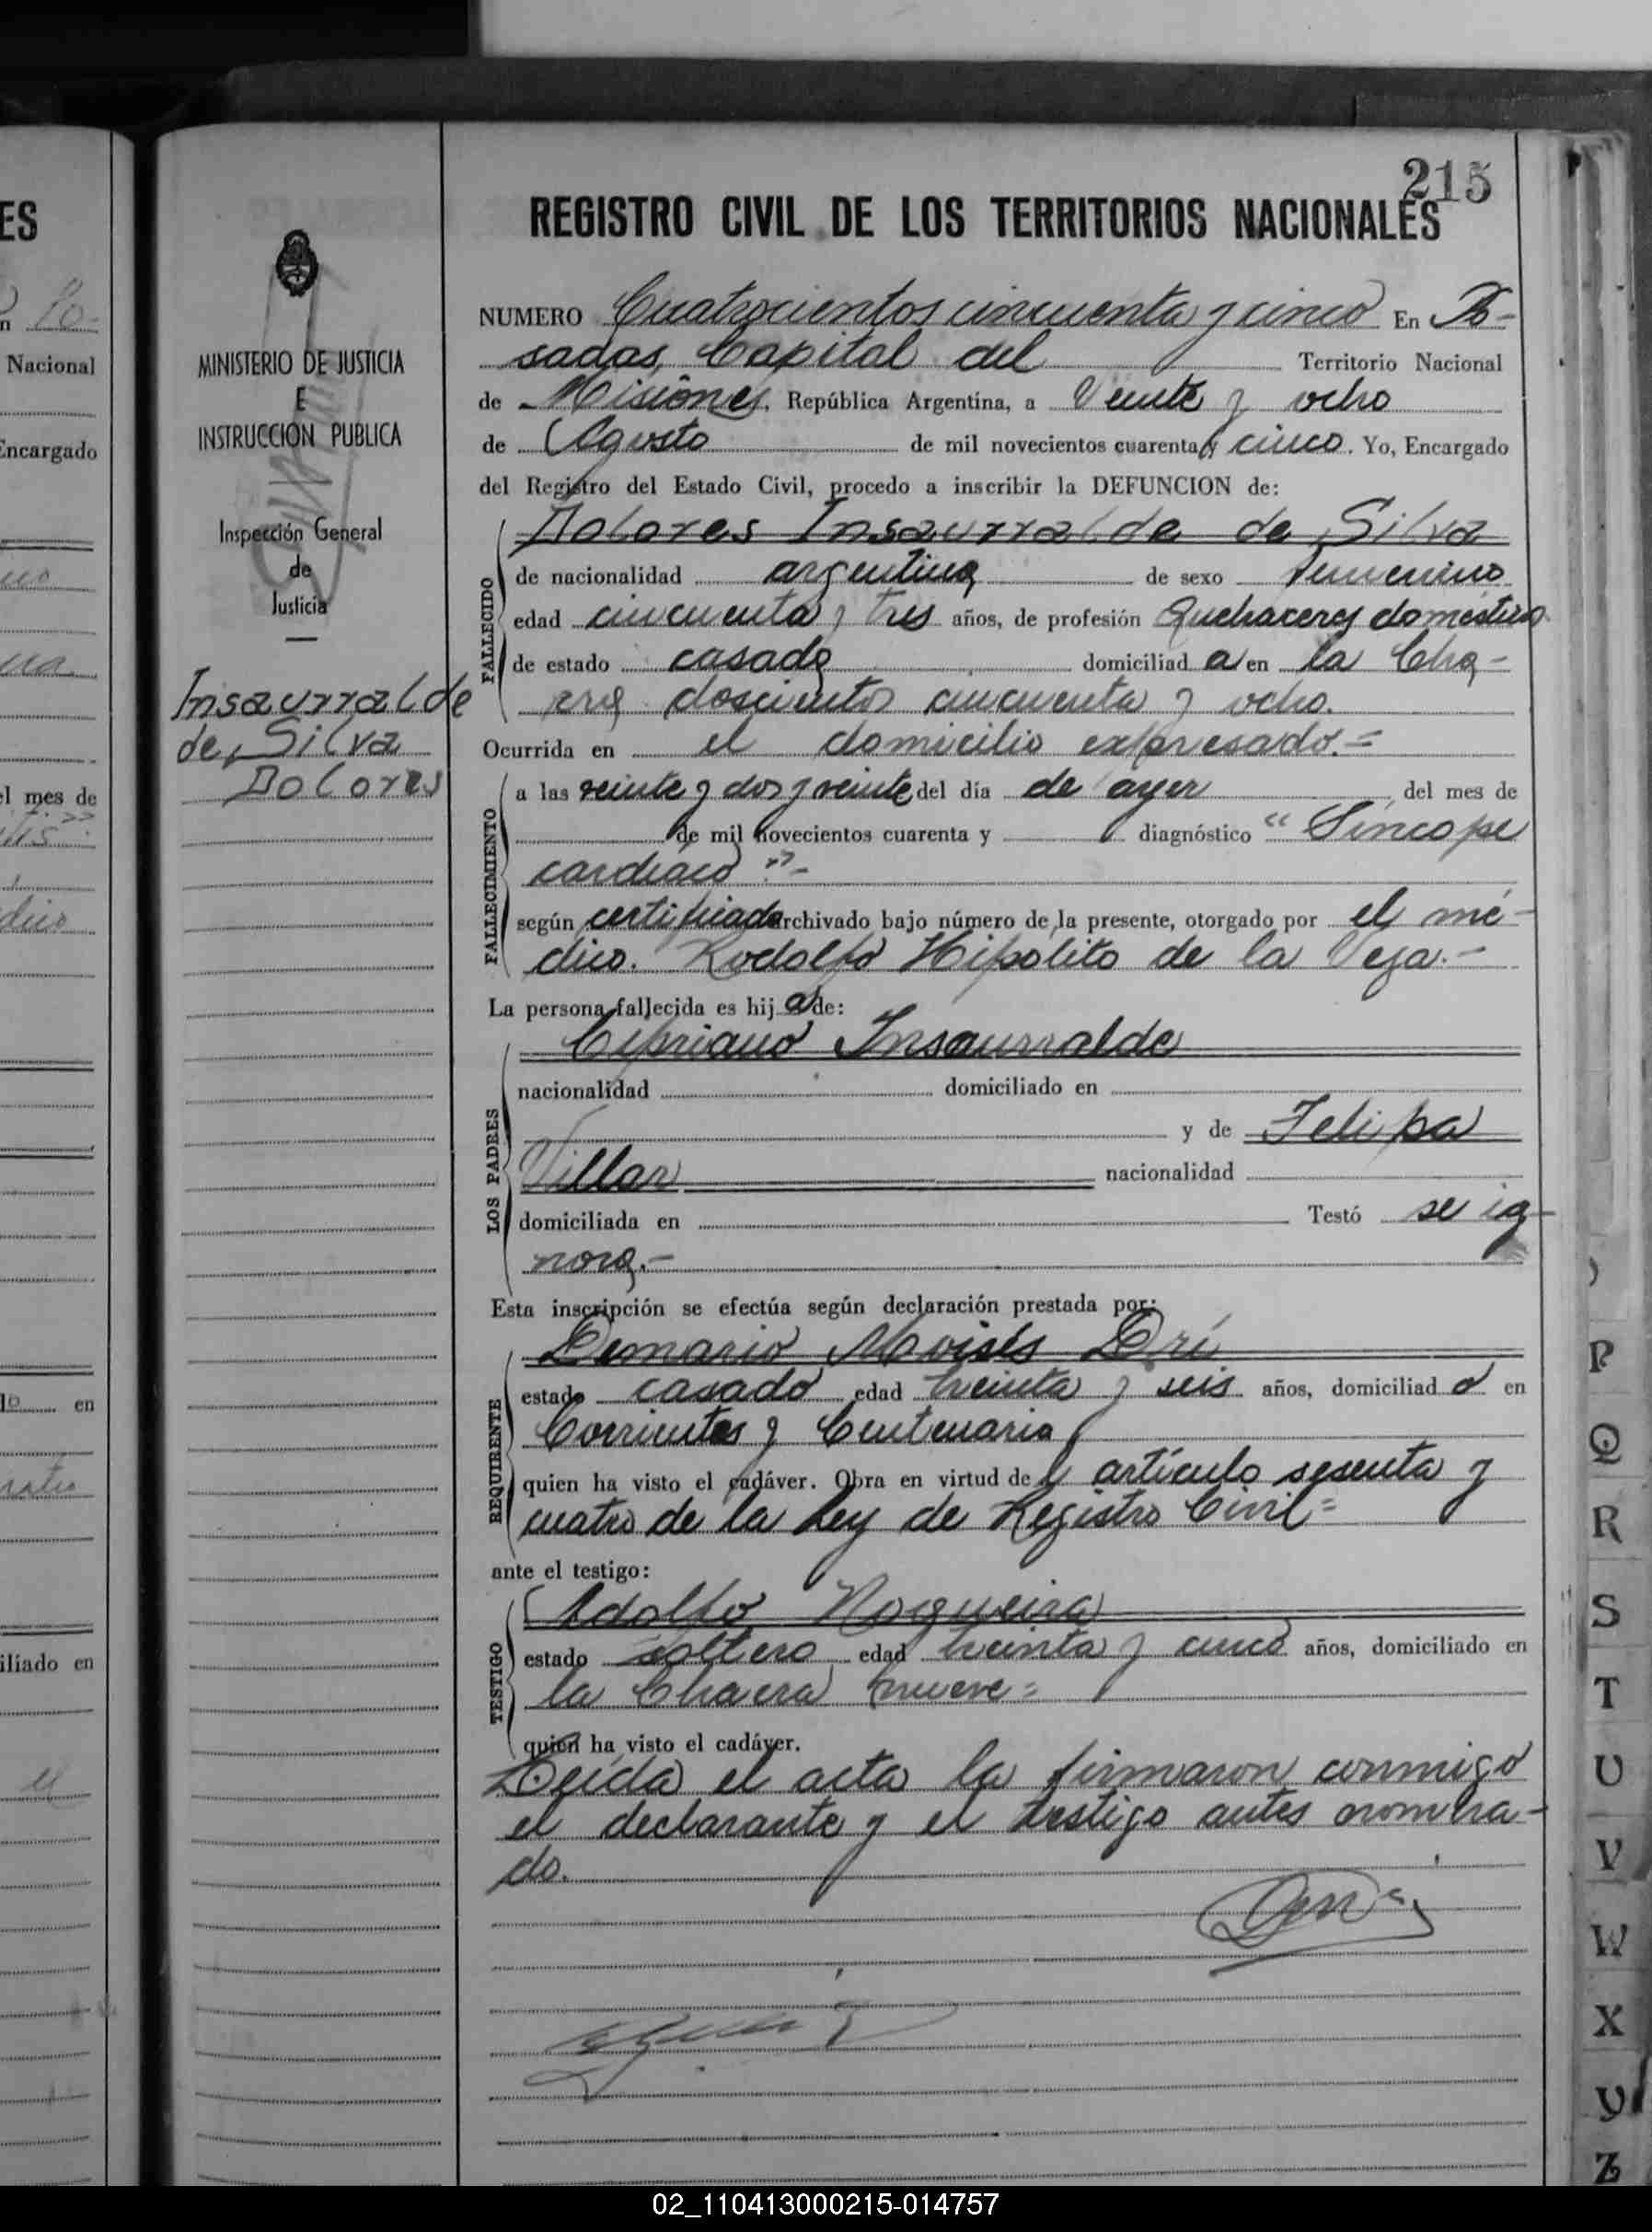 215
REGISTRO CIVIL DE LOS TERRITORIOS NACIONALES
MINISTERIO DE JUSTICIA
E
INSTRUCCIÓN PUBLICA
Inspección General
de
Justicia
Insaurralde
de Silva
Dolores
NUMERO Cuatrocientos cincuenta y cinco En Po-
sadas, Capital del Territorio Nacional
de Misiones, República Argentina, a Veinte y ocho
de Agosto de mil novecientos cuarenta y cinco. Yo, Encargado
del Registro del Estado Civil, procedo a inscribir la DEFUNCION de:
FALLECIDO
Dolores Insaurralde de Silva
de nacionalidad argentina de sexo femenino
edad cincuenta y tres años, de profesión Quehaceres domésticos
de estado casada domiciliad a en la Cha-
cra doscientos cincuenta y ocho.
Ocurrida en el domicilio expresado.=
FALLECIMIENTO
a las veinte y dos y veinte del día de ayer del mes de
de mil novecientos cuarenta y diagnóstico "Síncope
cardíaco".-
según certificado archivado bajo número de la presente, otorgado por el mé-
dico. Rodolfo Hipólito de la Vega.-
La persona fallecida es hij a de:
LOS PADRES
Cipriano Insaurralde
nacionalidad domiciliado en
y de Felipa
Villar nacionalidad
domiciliada en Testó se ig-
nora.-
Esta inscripción se efectúa según declaración prestada por:
REQUIRENTE
Demario Moisés Drí
estado casado edad treinta y seis años, domiciliad o en
Corrientes y Centenario
quien ha visto el cadáver. Obra en virtud del artículo sesenta y
cuatro de la Ley de Registro Civil=
ante el testigo:
TESTIGO
Adolfo Nogueira
estado soltero edad treinta y cinco años, domiciliado en
la Chacra nueve=
quien ha visto el cadáver.
Leída el acta la firmaron conmigo
el declarante y el testigo antes nombra-
do.
ES
n Po-
Nacional
Encargado
el mes de
en
iliado en
P
Q
R
S
T
U
V
W
X
Y
Z
02_110413000215-014757